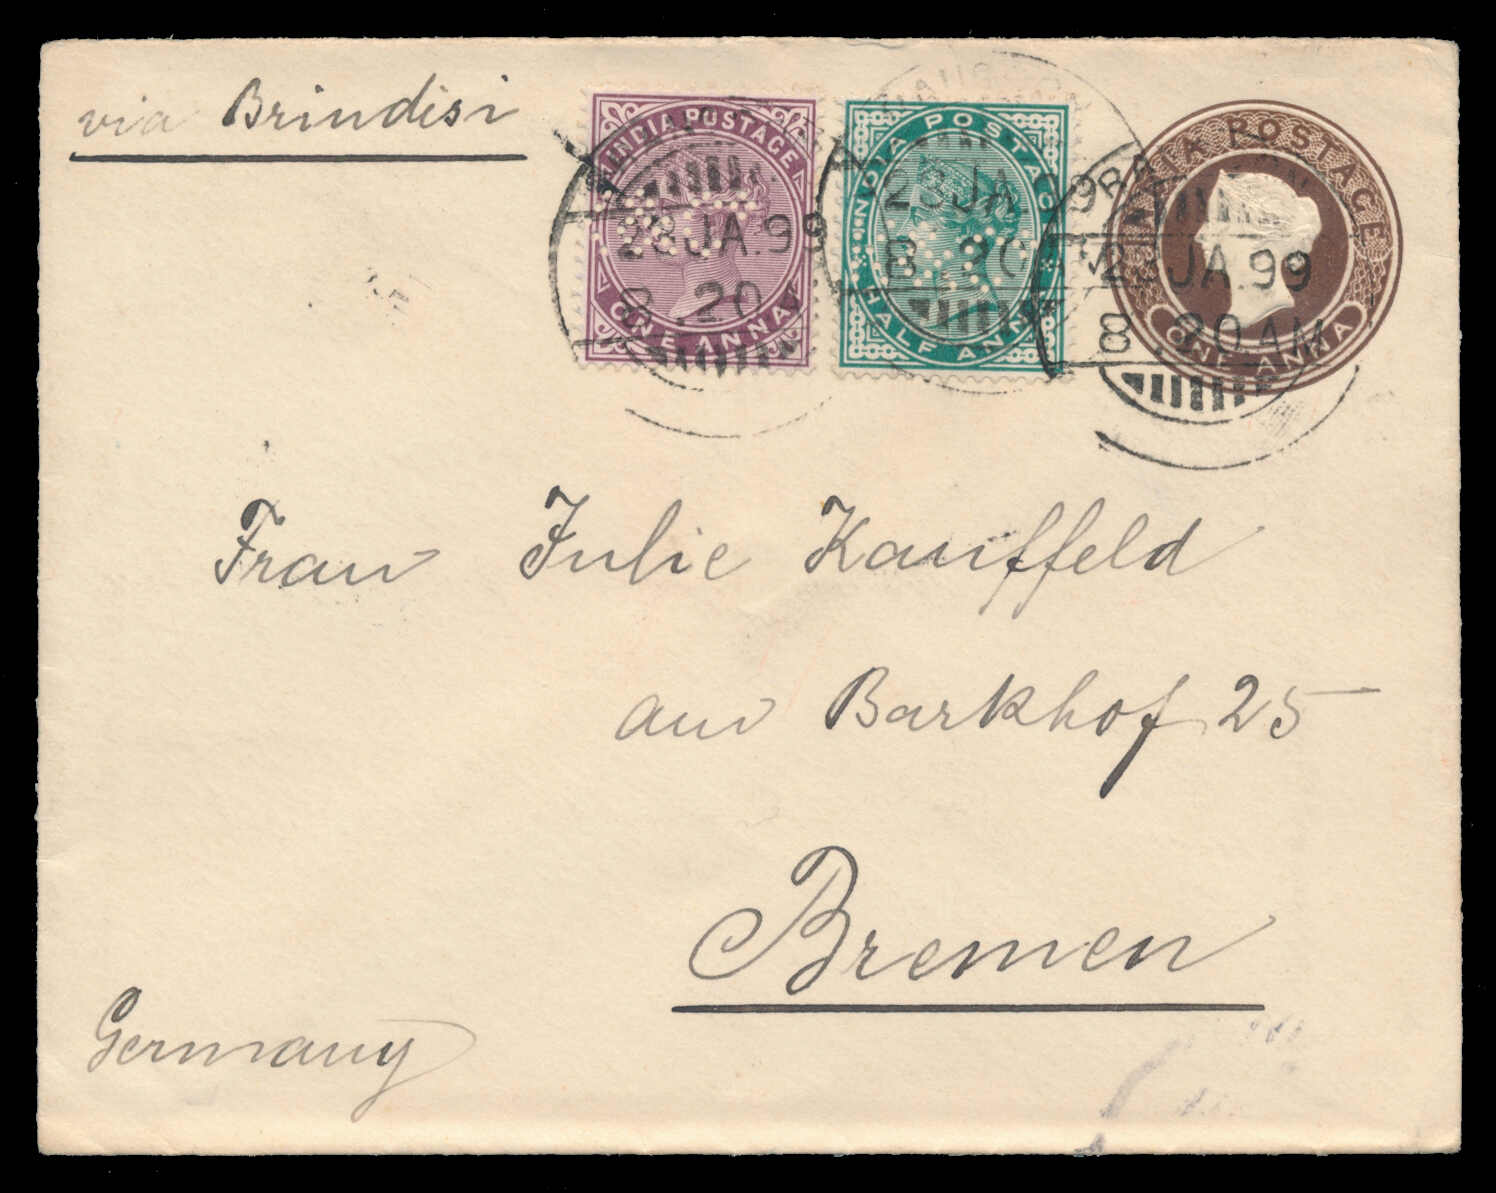 via Brindisi
INDIA POSTAGE
ONE ANNA
INDIA POSTAGE
HALF ANNA
INDIA POSTAGE
ONE ANNA
23 JA.99
8.20
23 JA. 99
8.20
23 JA.99
8.20 AM
Frau Julie Kauffeld
am Barkhof 25
Bremen
Germany